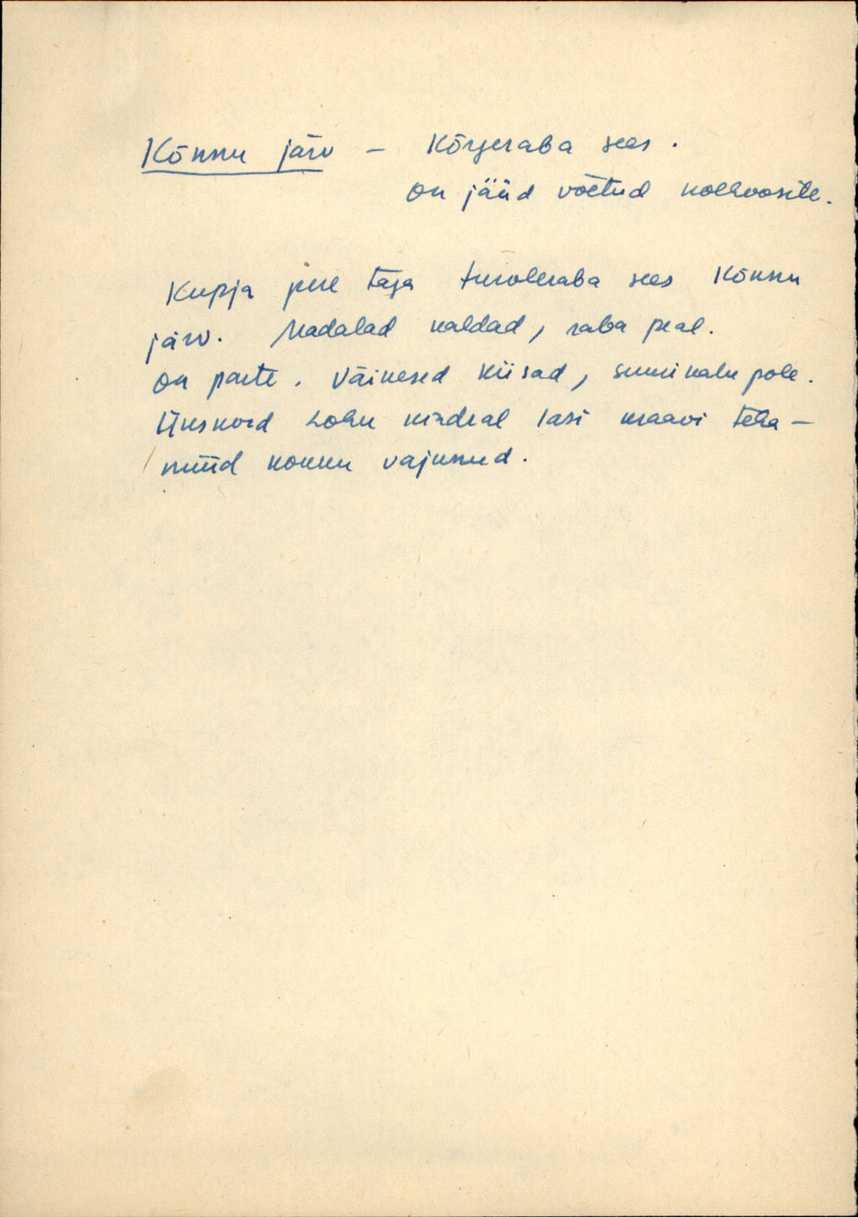 Kõnnu järv – Kõrgeraba sees.
on jääd võetud
Kupja pere taga turbleraba sees Kõnnu
järv. Madalad kaldad, raba peal.
on parte. Väikesed kiisad, suuri kalu pole.
Ükskord Lohu kindral lasi kraavi teha –
nüüd kokku vajunud.